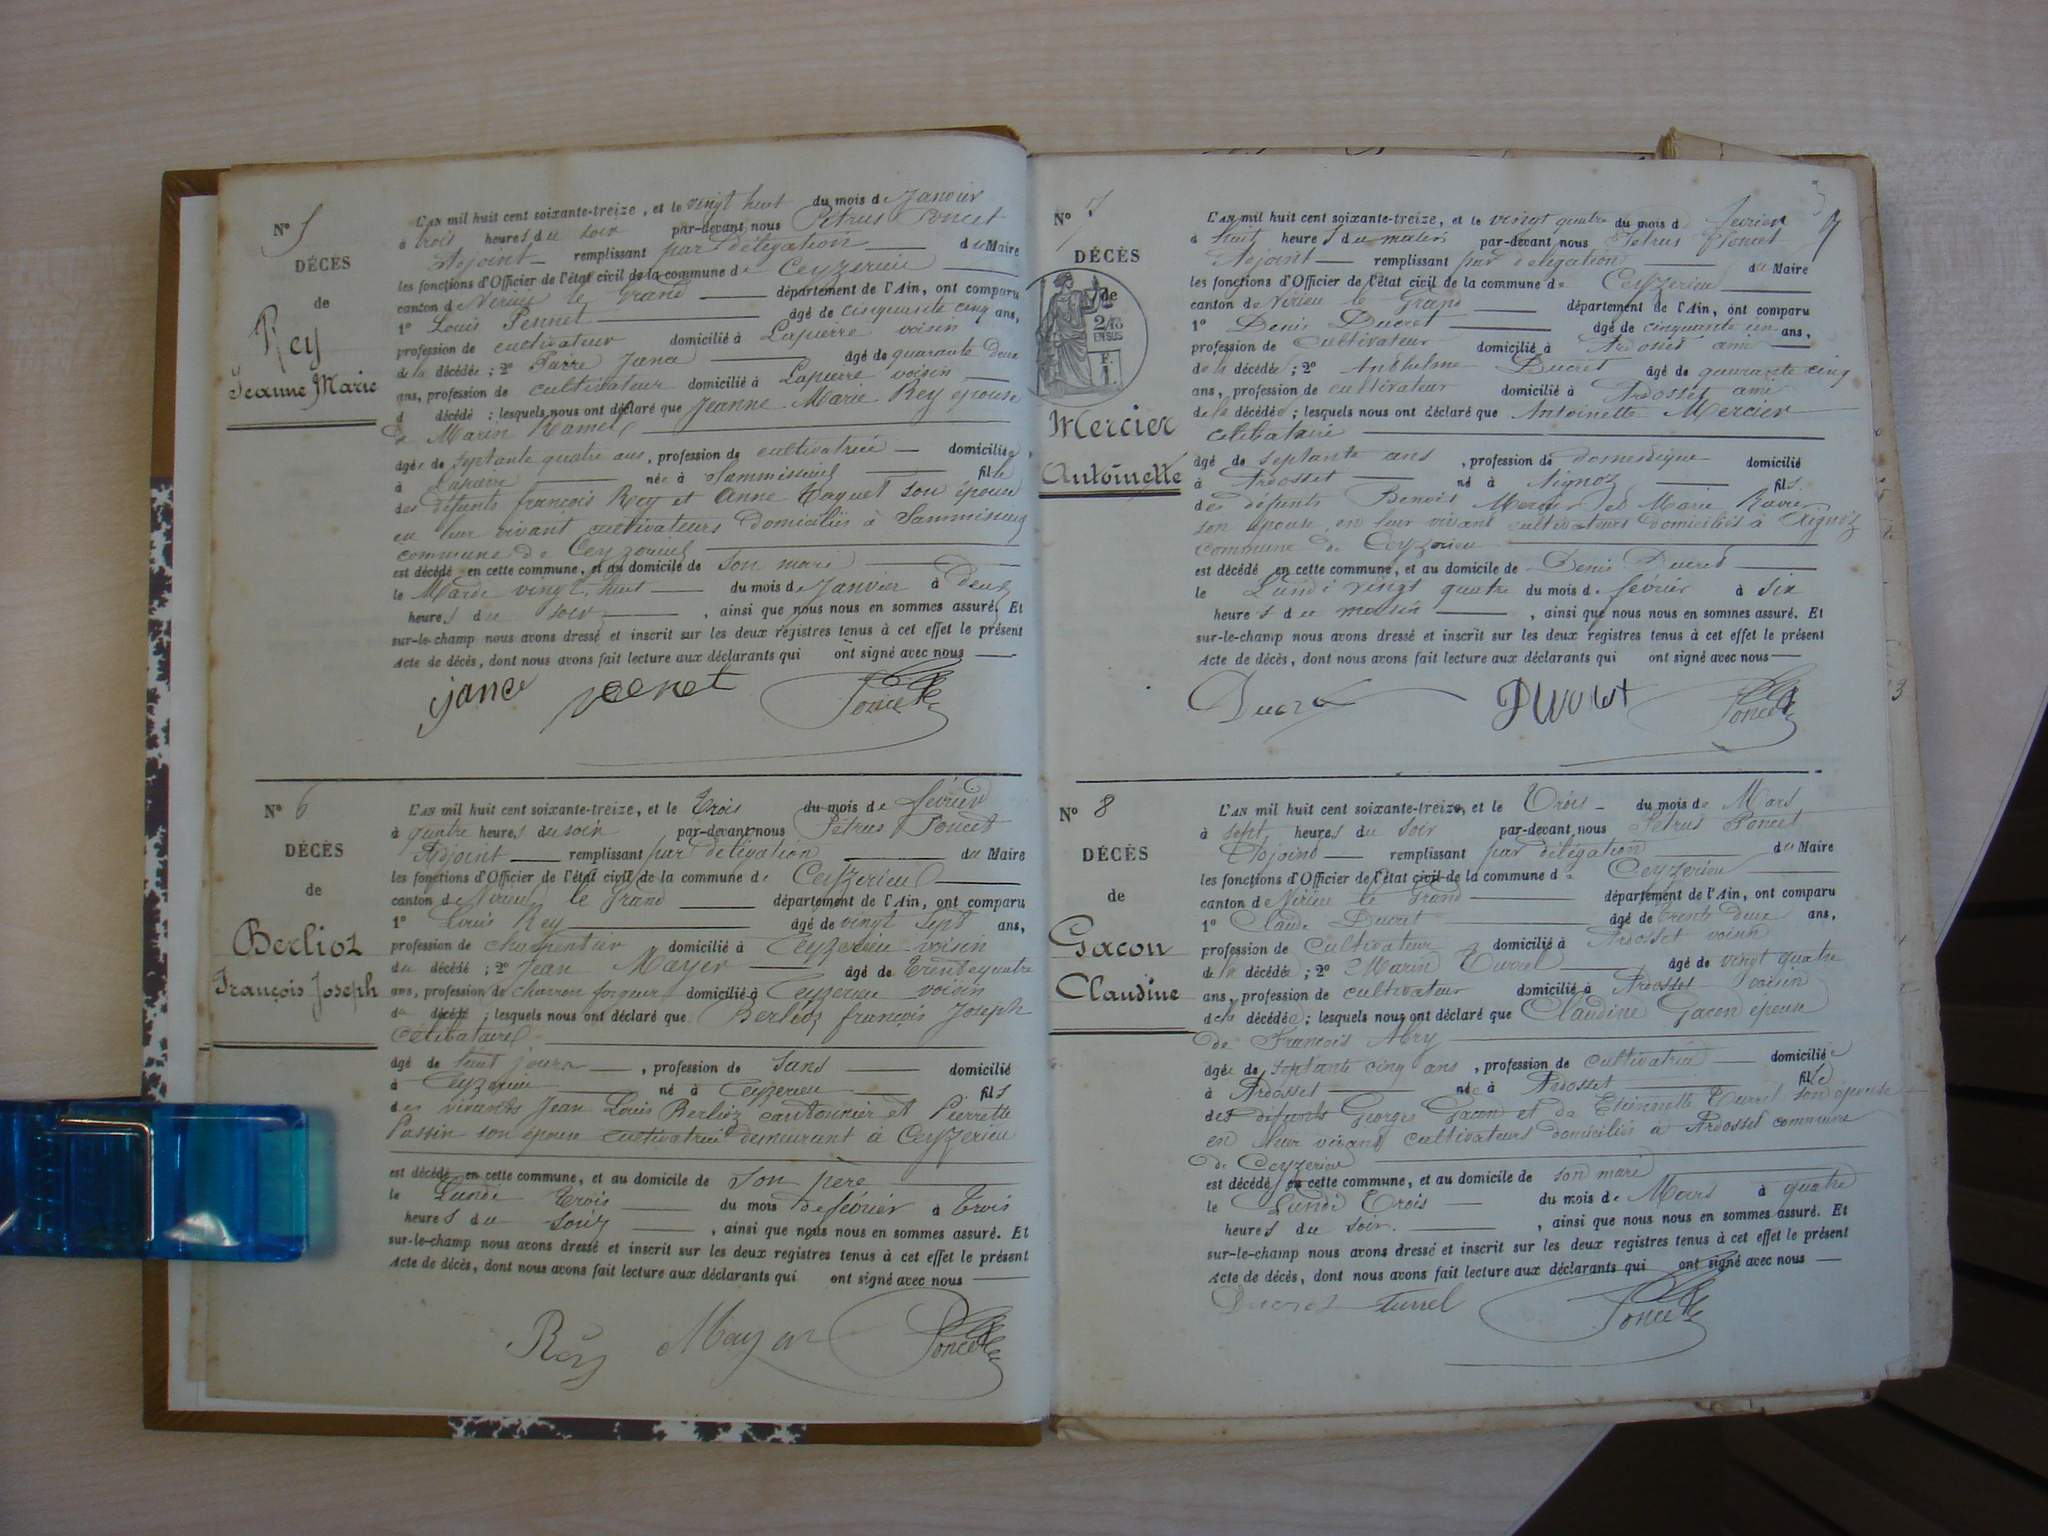 N° 5
DÉCÈS
de
Rey
Jeanne Marie
L'AN mil huit cent soixante-treize, et le vingt huit du mois de Janvier
à trois heures du soir par-devant nous Pétrus Poncet
Adjoint remplissant par délégation du Maire
les fonctions d'Officier de l'état civil de la commune de Ceyzerieu
canton de Virieu le Grand département de l'Ain, ont comparu
1° Louis Pennet âgé de cinquante cinq ans,
profession de cultivateur domicilié à Lapierre voisin
de la décédée ; 2° Pierre Jance âgé de quarante deux
ans, profession de cultivateur domicilié à Lapierre voisin
d décédé ; lesquels nous ont déclaré que Jeanne Marie Rey épouse
de Marin Ramel
âgée de septante quatre ans, profession de cultivatrice domiciliée
à Lapierre née à fille
des défunts françois Rey et Anne son épouse
en leur vivant cultivateurs domiciliés à
commune de Ceyzerieu
est décédé en cette commune, et au domicile de son mari
le Mardi vingt huit du mois de Janvier à Deux
heures du soir, ainsi que nous nous en sommes assuré. Et
sur-le-champ nous avons dressé et inscrit sur les deux registres tenus à cet effet le présent
Acte de décès, dont nous avons fait lecture aux déclarants qui ont signé avec nous
jance penet Poncet
N° 6
DÉCÈS
de
Berlioz
François Joseph
L'AN mil huit cent soixante-treize, et le Trois du mois de février
à quatre heures du soir par-devant nous Pétrus Poncet
Adjoint remplissant par délégation du Maire
les fonctions d'Officier de l'état civil de la commune de Ceyzerieu
canton de Virieu le Grand département de l'Ain, ont comparu
1° Louis Rey âgé de vingt sept ans,
profession de charpentier domicilié à Ceyzerieu voisin
du décédé ; 2° Jean Mayer âgé de Trente quatre
ans, profession de charron forgeur domicilié à Ceyzerieu voisin
du décédé ; lesquels nous ont déclaré que Berlioz françois Joseph
Célibataire
âgé de huit jours, profession de sans domicilié
à Ceyzerieu né à Ceyzerieu fils
des vivants Jean Louis Berlioz cantonnier et Pierrette
Passin son épouse cultivatrice demeurant à Ceyzerieu
est décédé en cette commune, et au domicile de son père
le Lundi Trois du mois de février à Trois
heures du soir, ainsi que nous nous en sommes assuré. Et
sur-le-champ nous avons dressé et inscrit sur les deux registres tenus à cet effet le présent
Acte de décès, dont nous avons fait lecture aux déclarants qui ont signé avec nous
Rey Mayer Poncet
N° 7
DÉCÈS
de
2/10
EN SUS
F.
1.
Mercier
Antoinette
L'AN mil huit cent soixante-treize, et le vingt quatre du mois d février
à huit heures du matin par-devant nous Pétrus Poncet
Adjoint remplissant par délégation du Maire
les fonctions d'Officier de l'état civil de la commune de Ceyzerieu
canton de Virieu le Grand département de l'Ain, ont comparu
1° Denis Ducret âgé de cinquante un ans,
profession de Cultivateur domicilié à Ardosset ami
de la décédée ; 2° Anthelme Ducret âgé de quarante cinq
ans, profession de cultivateur domicilié à Ardosset ami
de la décédée ; lesquels nous ont déclaré que Antoinette Mercier
célibataire
âgé de septante ans, profession de domestique domicilié
à Ardosset né à Aignoz fils
des défunts Benoit Mercier et Marie
son épouse en leur vivant cultivateurs domiciliés à Aignoz
commune de Ceyzerieu
est décédé en cette commune, et au domicile de Denis Ducret
le Lundi vingt quatre du mois de février à six
heures du matin, ainsi que nous nous en sommes assuré. Et
sur-le-champ nous avons dressé et inscrit sur les deux registres tenus à cet effet le présent
Acte de décès, dont nous avons fait lecture aux déclarants qui ont signé avec nous
Poncet
N° 8
DÉCÈS
de
Gacon
Claudine
L'AN mil huit cent soixante-treize, et le Trois du mois de Mars
à sept heures du soir par-devant nous Pétrus Poncet
Adjoint remplissant par délégation du Maire
les fonctions d'Officier de l'état civil de la commune de Ceyzerieu
canton de Virieu le Grand département de l'Ain, ont comparu
1° Claude Ducret âgé de trente deux ans,
profession de Cultivateur domicilié à Ardosset voisin
de la décédée ; 2° Marin Turrel âgé de vingt quatre
ans, profession de cultivateur domicilié à Ardosset voisin
de la décédée ; lesquels nous ont déclaré que Claudine Gacon épouse
de François Mry
âgée de septante cinq ans, profession de cultivatrice domiciliée
à Ardosset née à Ardosset fille
des défunts Georges Gacon et de Etiennette Turrel son épouse
en leur vivant cultivateurs domiciliés à Ardosset commune
de Ceyzerieu
est décédé en cette commune, et au domicile de son mari
le Lundi Trois du mois de Mars à quatre
heures du soir, ainsi que nous nous en sommes assuré. Et
sur-le-champ nous avons dressé et inscrit sur les deux registres tenus à cet effet le présent
Acte de décès, dont nous avons fait lecture aux déclarants qui ont signé avec nous
Ducret turrel Poncet